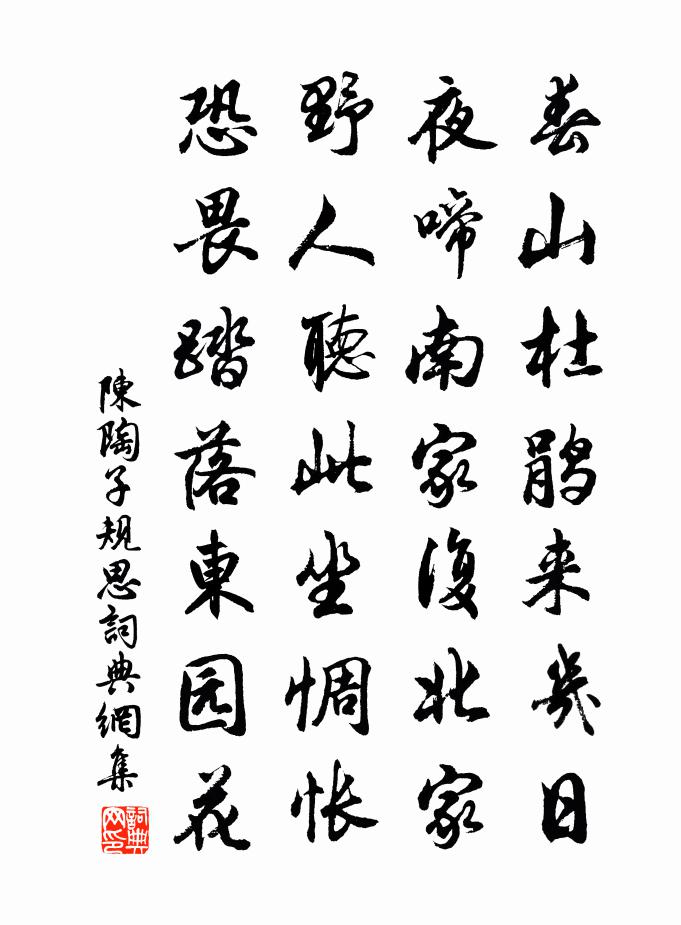 春山杜鹃来幾日
夜啼南家復北家
野人聽此坐惆怅
恐畏踏落東园花
陳陶子規思詞典網集
詞典网印